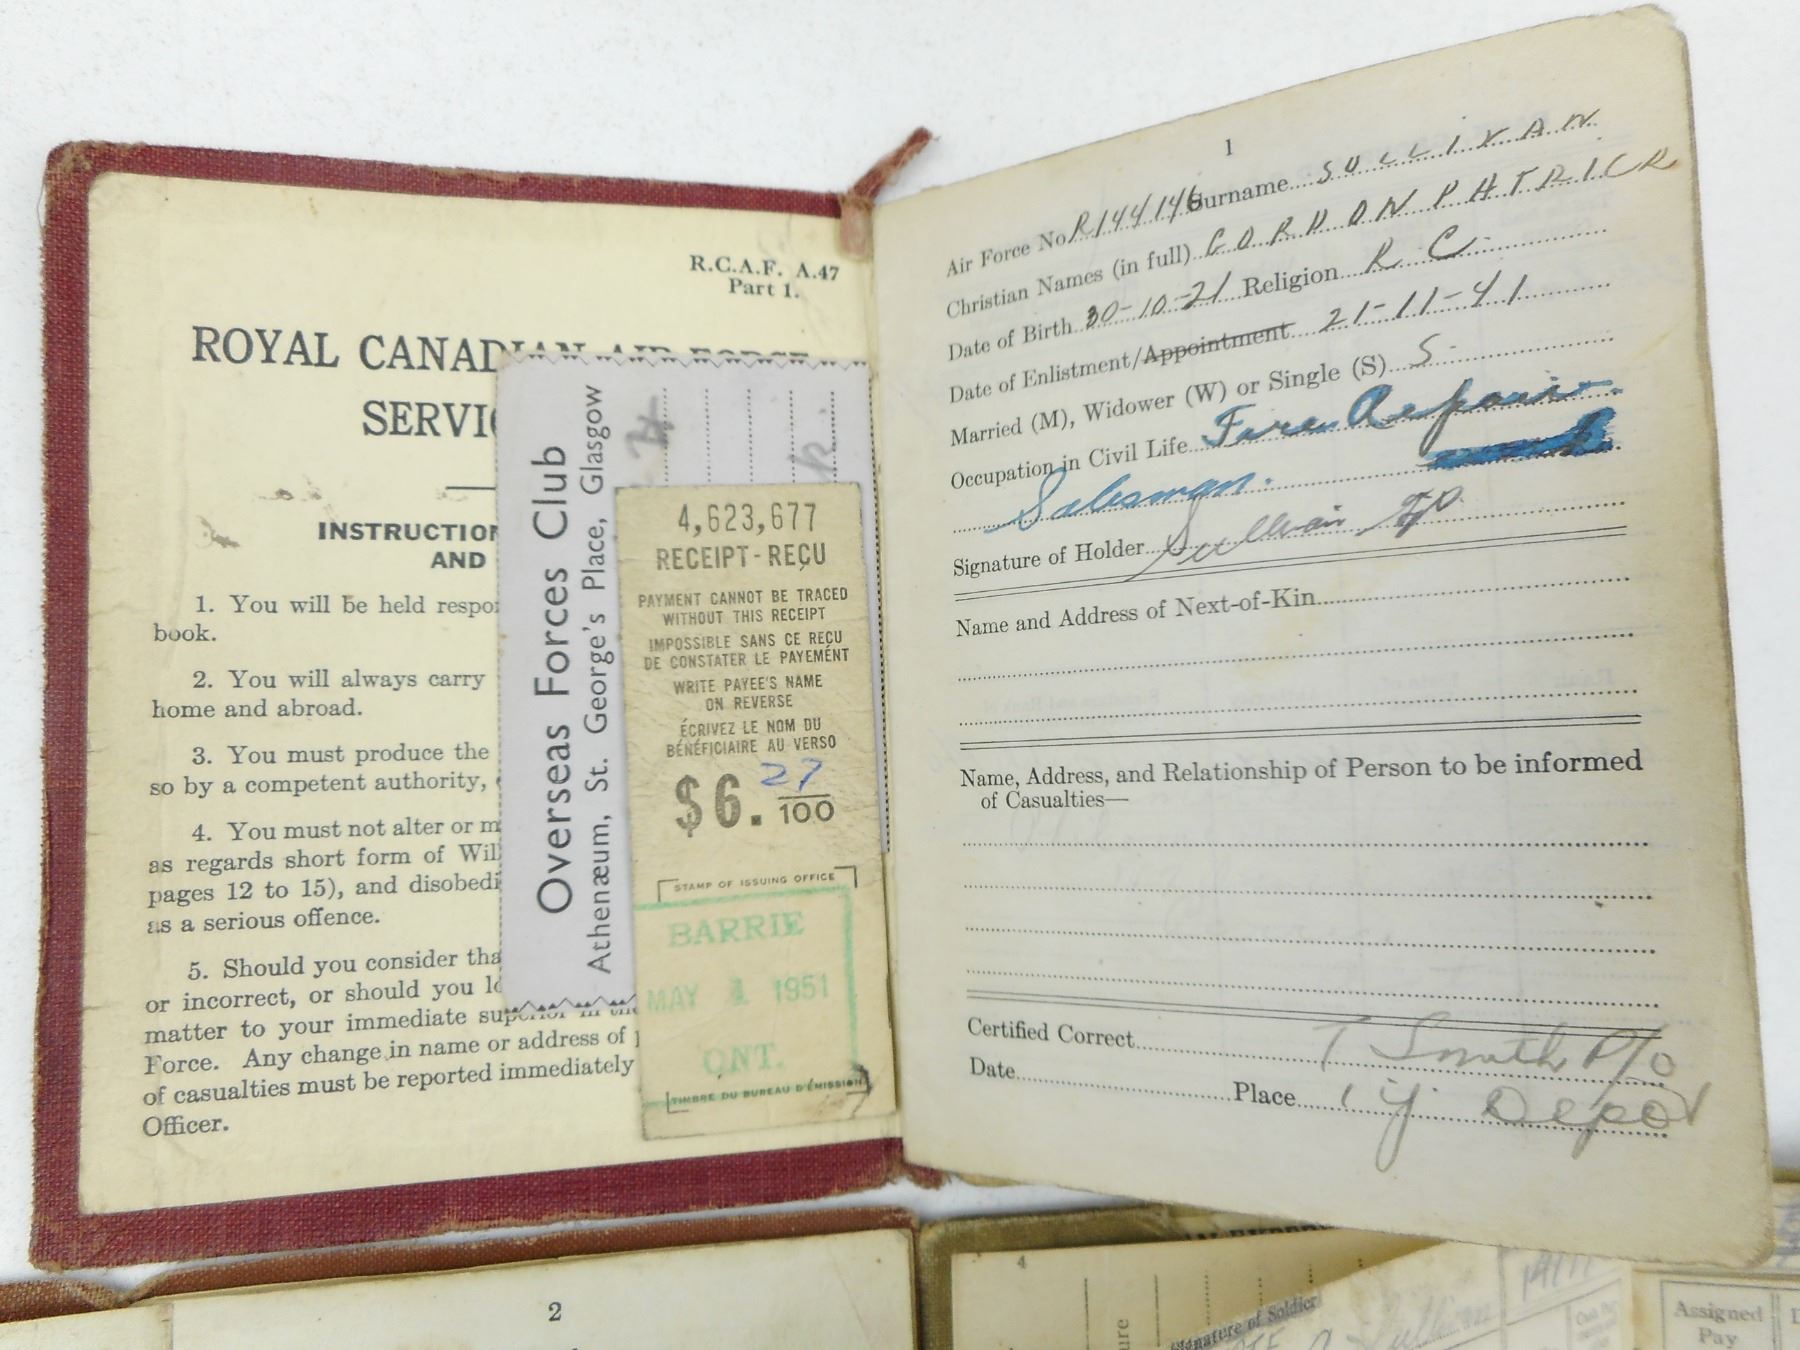 R.C.A.F. A.47
Part 1.
ROYAL CANADIAN AIR FORCE
INSTRUCTION
AND
1. You will be held
book.
2. You will always carry
home and abroad.
3. You must produce the
so by a competent authority,
4. You must not alter or
as regards short form of
pages 12 to 15), and
as a serious offence.
5. Should you consider
or incorrect, or should you
matter to your immediate superior in
Force. Any change in name or address of
of casualties must be reported immediately
Officer.
Overseas Forces Club
Athenæum, St. George's Place, Glasgow
4,623,677
RECEIPT-REÇU
PAYMENT CANNOT BE TRACED
WITHOUT THIS RECEIPT
IMPOSSIBLE SANS CE REÇU
DE CONSTATER LE PAYEMENT
WRITE PAYEE'S NAME
ON REVERSE
ÉCRIVEZ LE NOM DU
BÉNÉFICIAIRE AU VERSO
$6. 27/100
STAMP OF ISSUING OFFICE
BARRIE
MAY 1 1951
ONT.
TIMBRE DU BUREAU D'ÉMISSION
1
Air Force No R144146 Surname SULLIVAN
Christian Names (in full) GORDON PATRICK
Date of Birth 30-10-21 Religion R C
Date of Enlistment/Appointment 21-11-41
Married (M), Widower (W) or Single (S) S
Occupation in Civil Life Repair
Salesman.
Signature of Holder Sullivan GP
Name and Address of Next-of-Kin
Name, Address, and Relationship of Person to be informed
of Casualties—
Certified Correct T Smith P/O
Date Place Depot
2
4
Signature of Soldier
Assigned
Pay